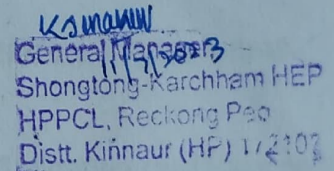 General Manager
Shongtong-Karchham HEP
HPPCL, Reckong Peo
Distt. Kinnaur (HP) 172107